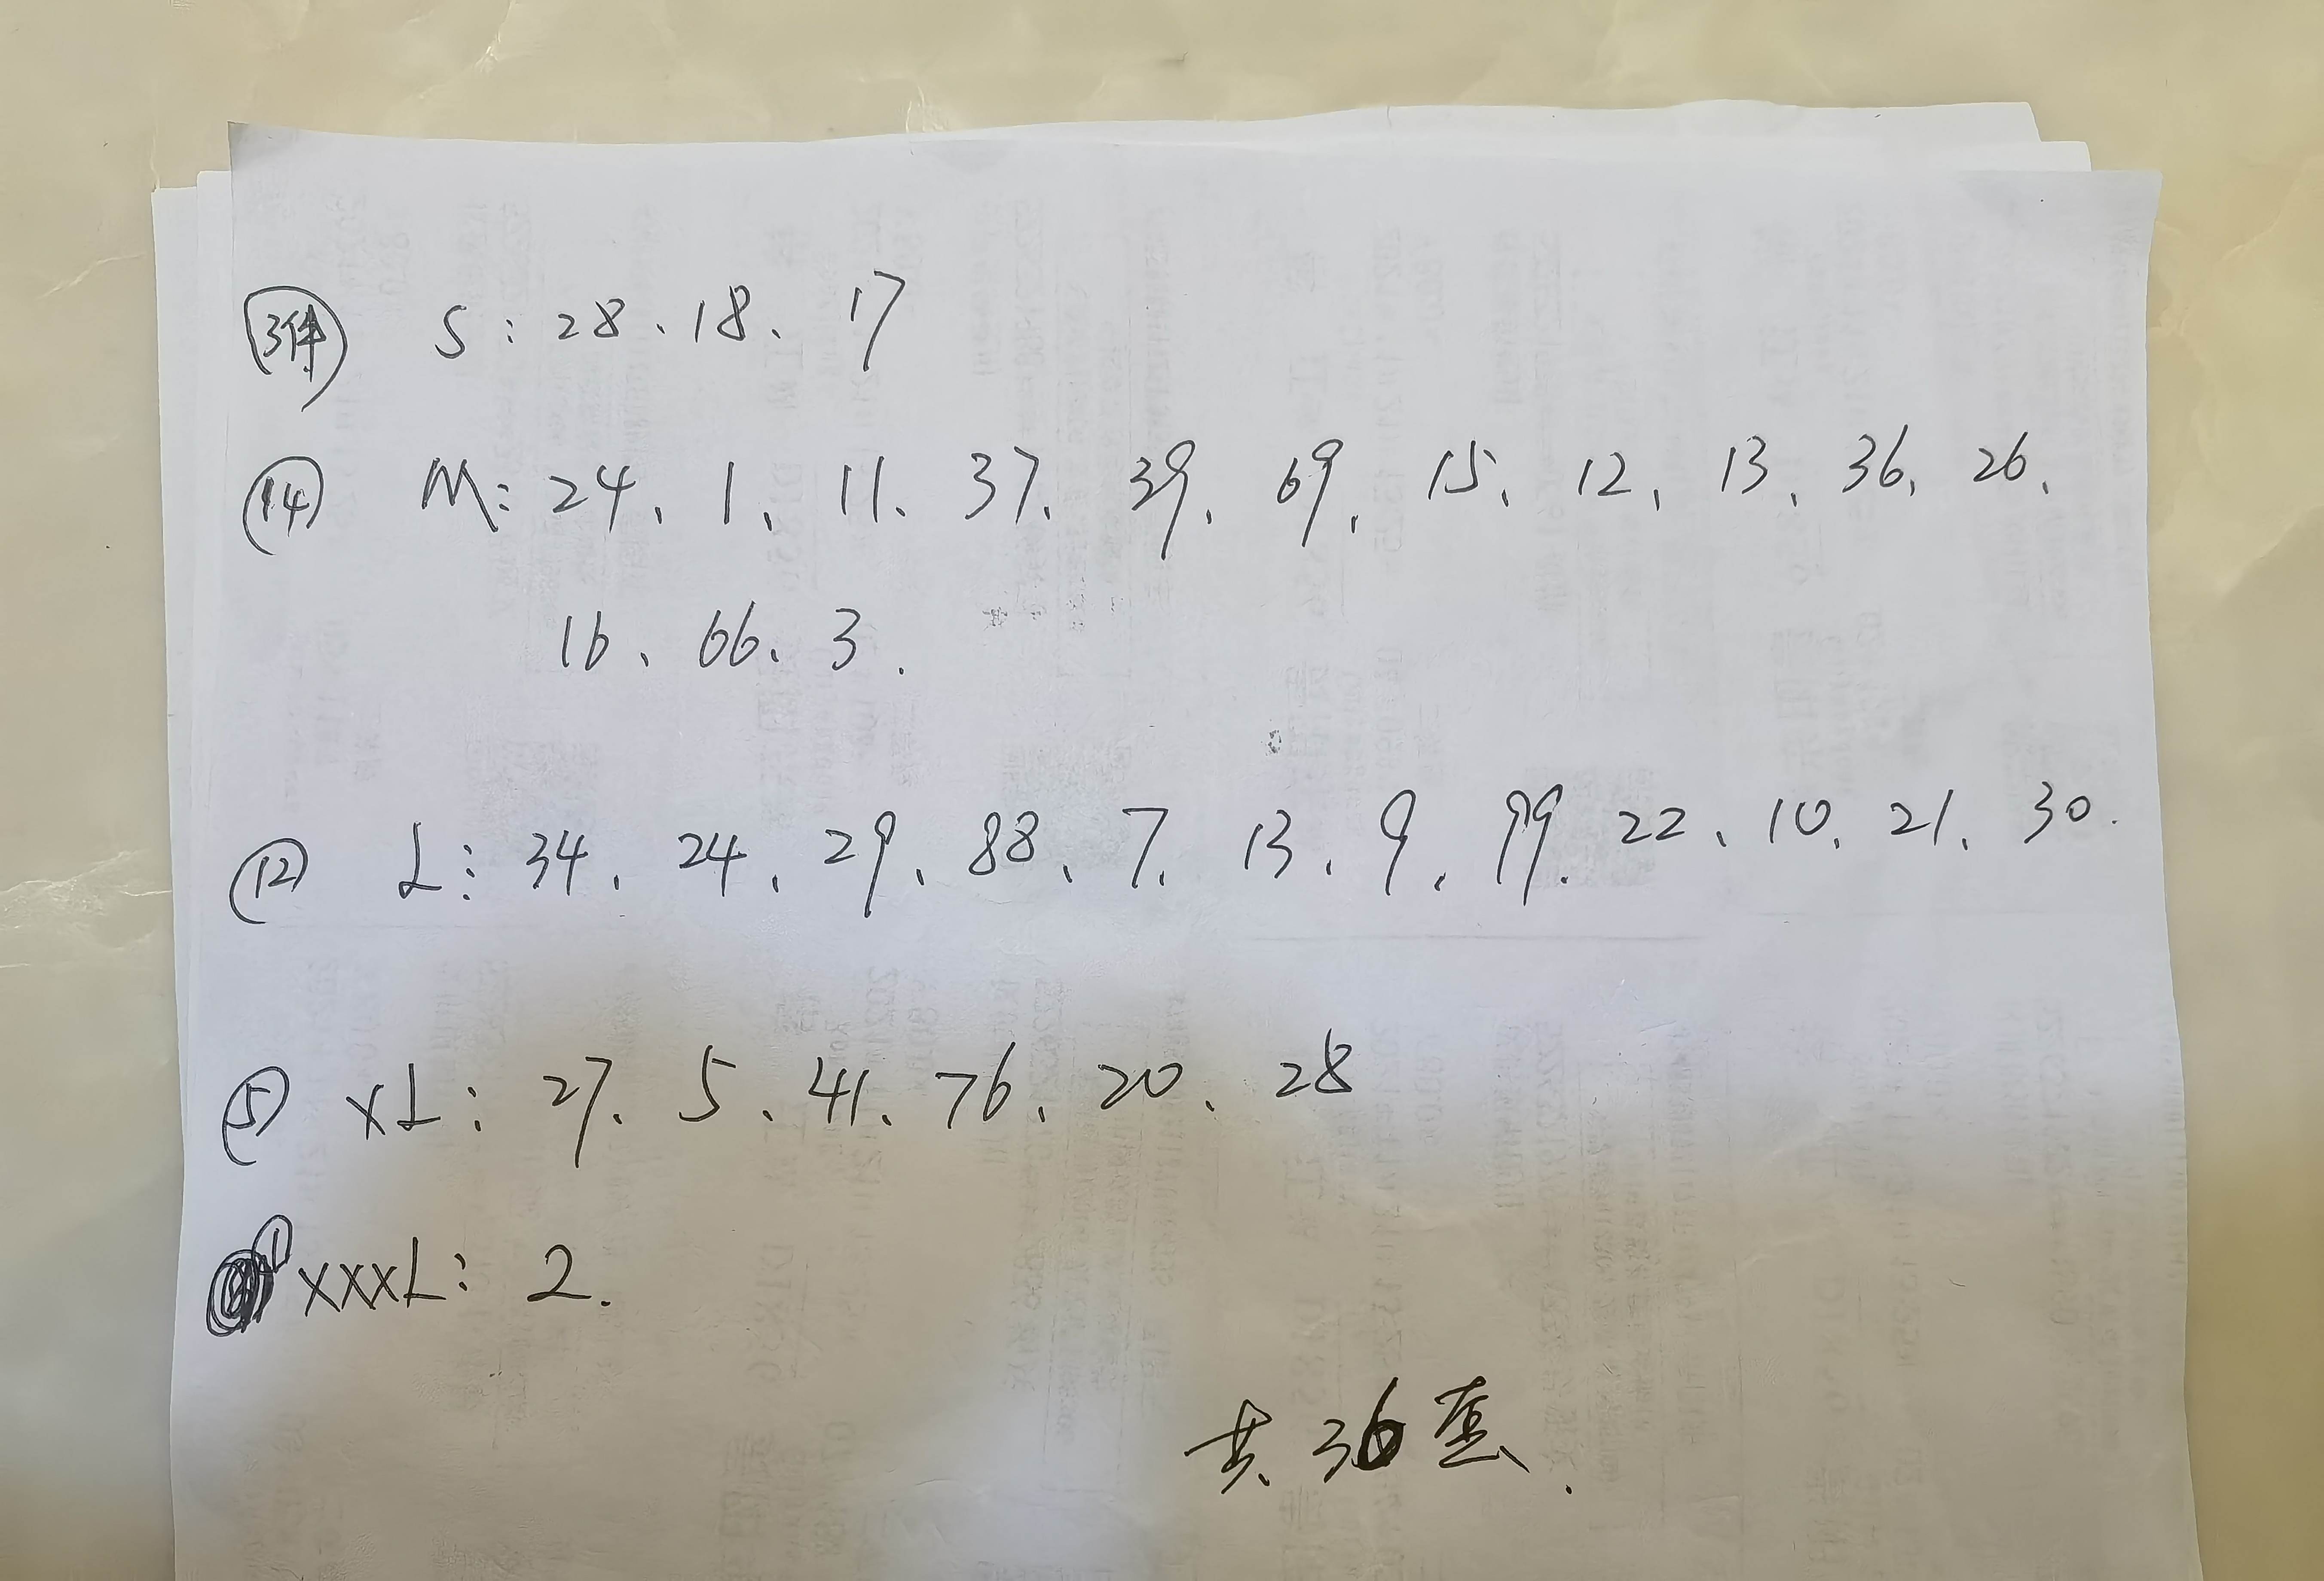 3件 S:28、18、17
14 M:24、1、11、37、39、69、15、12、13、36、26、
16、66、3.
12 L:34、24、29、88、7、13、9、99.22、10、21、30.
5 xL:27、5、41、76、20、28
1 xxxL:2.
共36套.